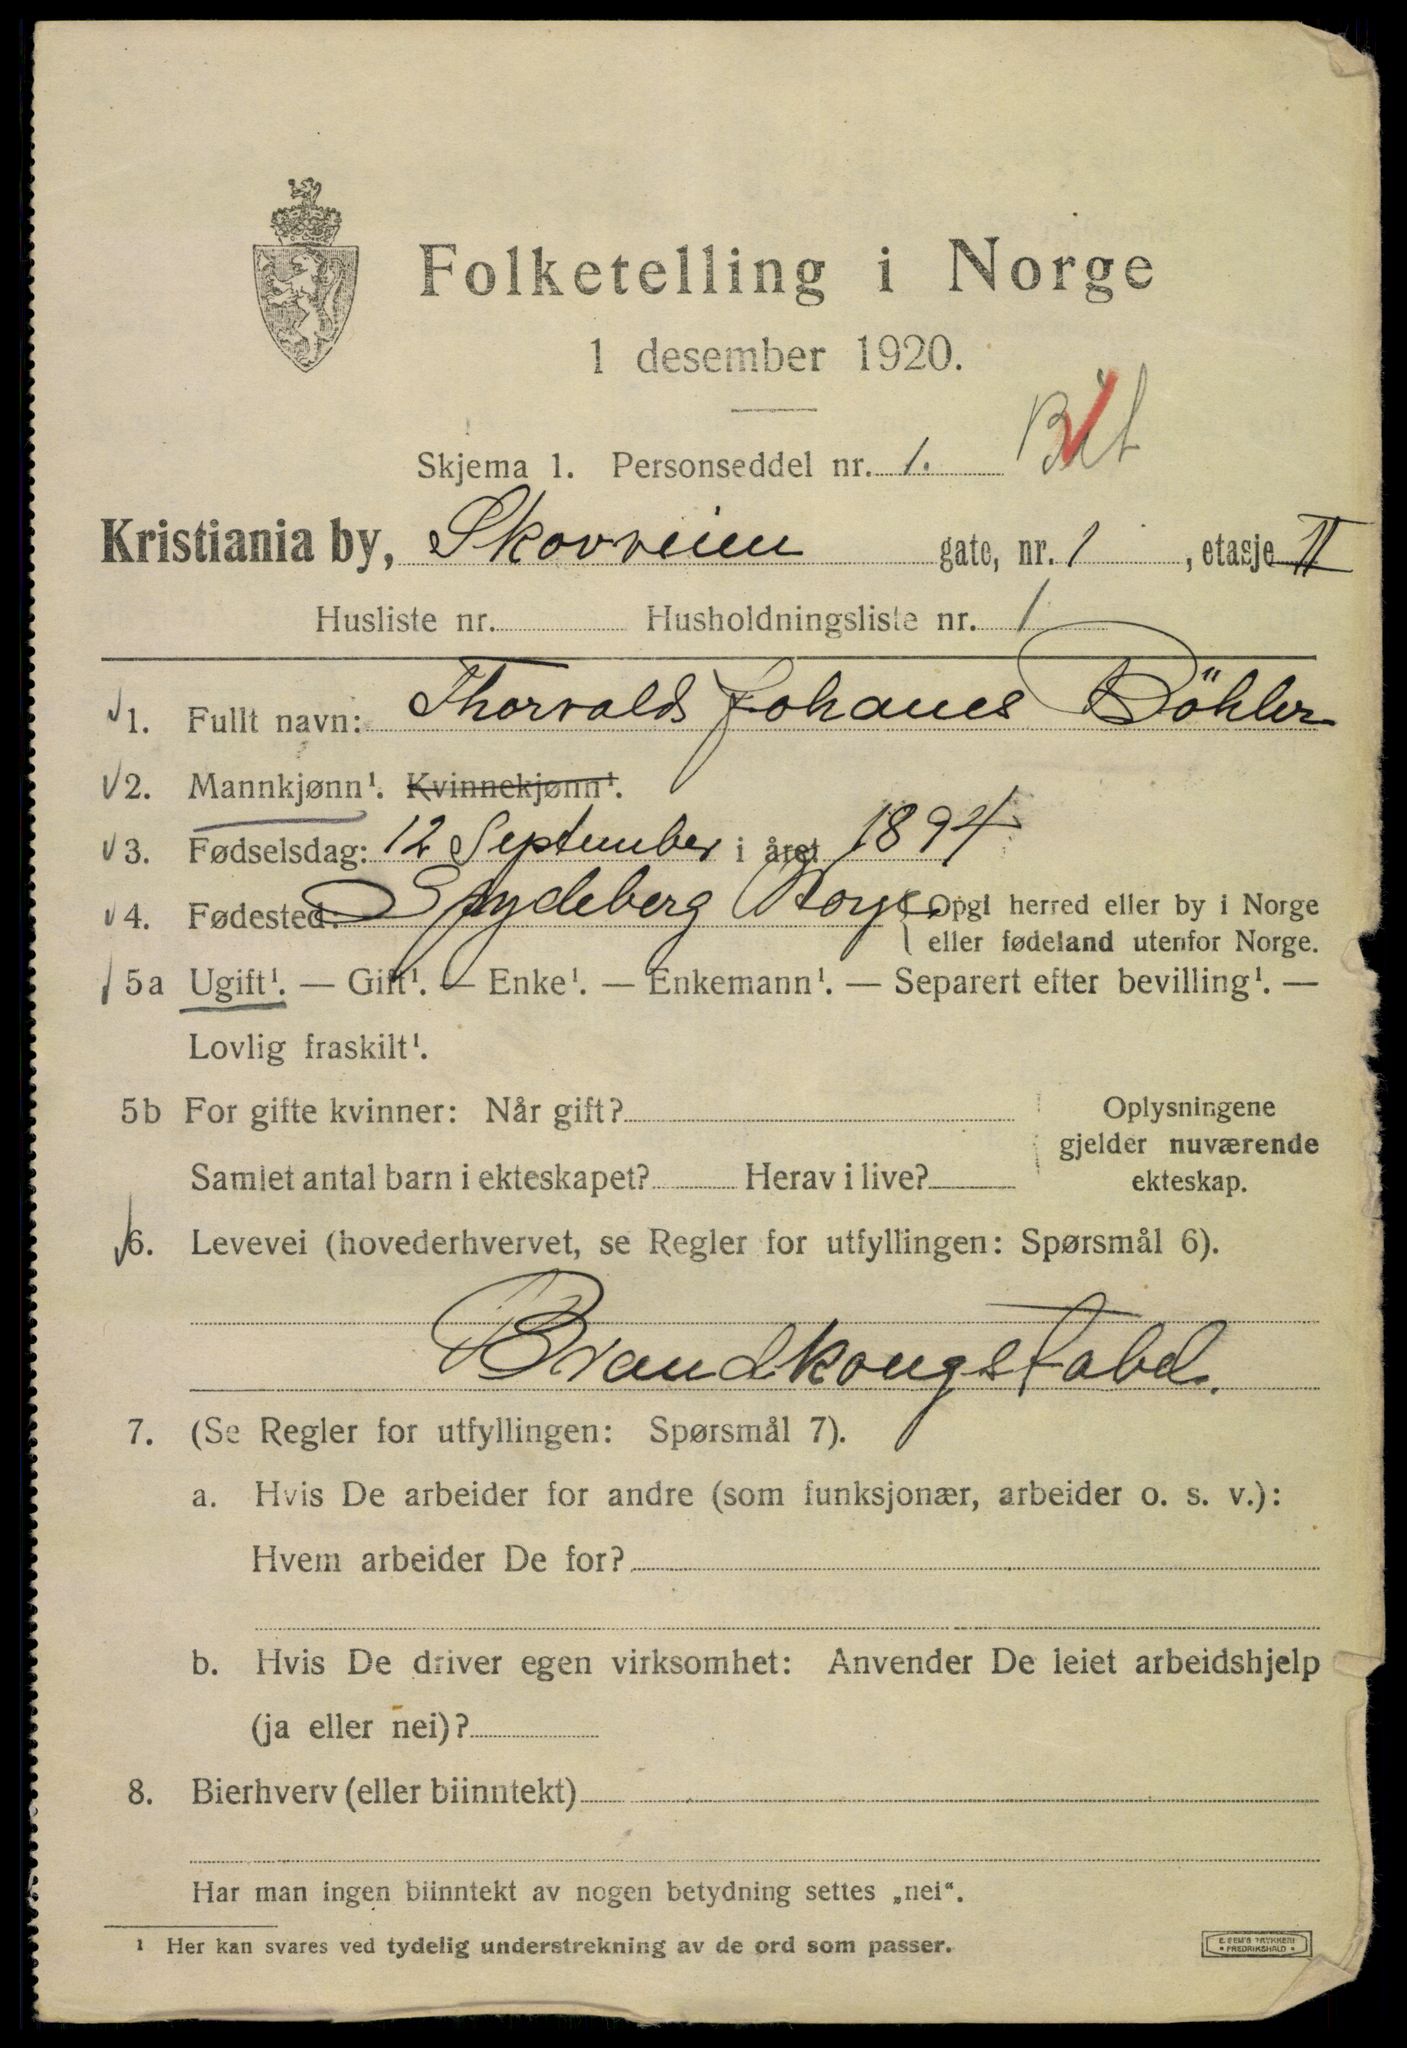 Folketelling i Norge
1 desember 1920.
Skjema 1. Personseddel nr. 1.
Kristiania by, Skovveien gate, nr. 1, etasje II
Husliste nr. Husholdningsliste nr. 1
1. Fullt navn: Thorvald Johanes Böhler
2. Mannkjønn¹. Kvinnekjønn¹.
3. Fødselsdag: 12 September i året 1894
4. Fødested: Spydeberg Norge Opgi herred eller by i Norge
eller fødeland utenfor Norge.
5a Ugift¹. — Gift¹. — Enke¹. — Enkemann¹. — Separert efter bevilling¹. —
Lovlig fraskilt¹.
5b For gifte kvinner: Når gift?
Samlet antal barn i ekteskapet? Herav i live?
Oplysningene
gjelder nuværende
ekteskap.
6. Levevei (hovederhvervet, se Regler for utfyllingen: Spørsmål 6).
Brandkongstabel.
7. (Se Regler for utfyllingen: Spørsmål 7).
a. Hvis De arbeider for andre (som funksjonær, arbeider o. s. v.):
Hvem arbeider De for?
b. Hvis De driver egen virksomhet: Anvender De leiet arbeidshjelp
(ja eller nei)?
8. Bierhverv (eller biinntekt)
Har man ingen biinntekt av nogen betydning settes „nei“.
¹ Her kan svares ved tydelig understrekning av de ord som passer.
E. SEM'S TRYKKERI
• FREDRIKSHALD •